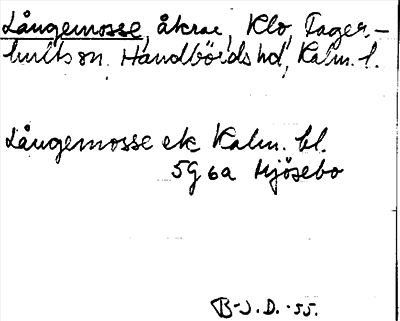 Långemosse, åkrar, Klo, Fager-
hults sn. Handbörds hd, Kalm. l.
Långemosse ek Kalm. bl.
5G 6a Mjösebo
B-J. D. -55.